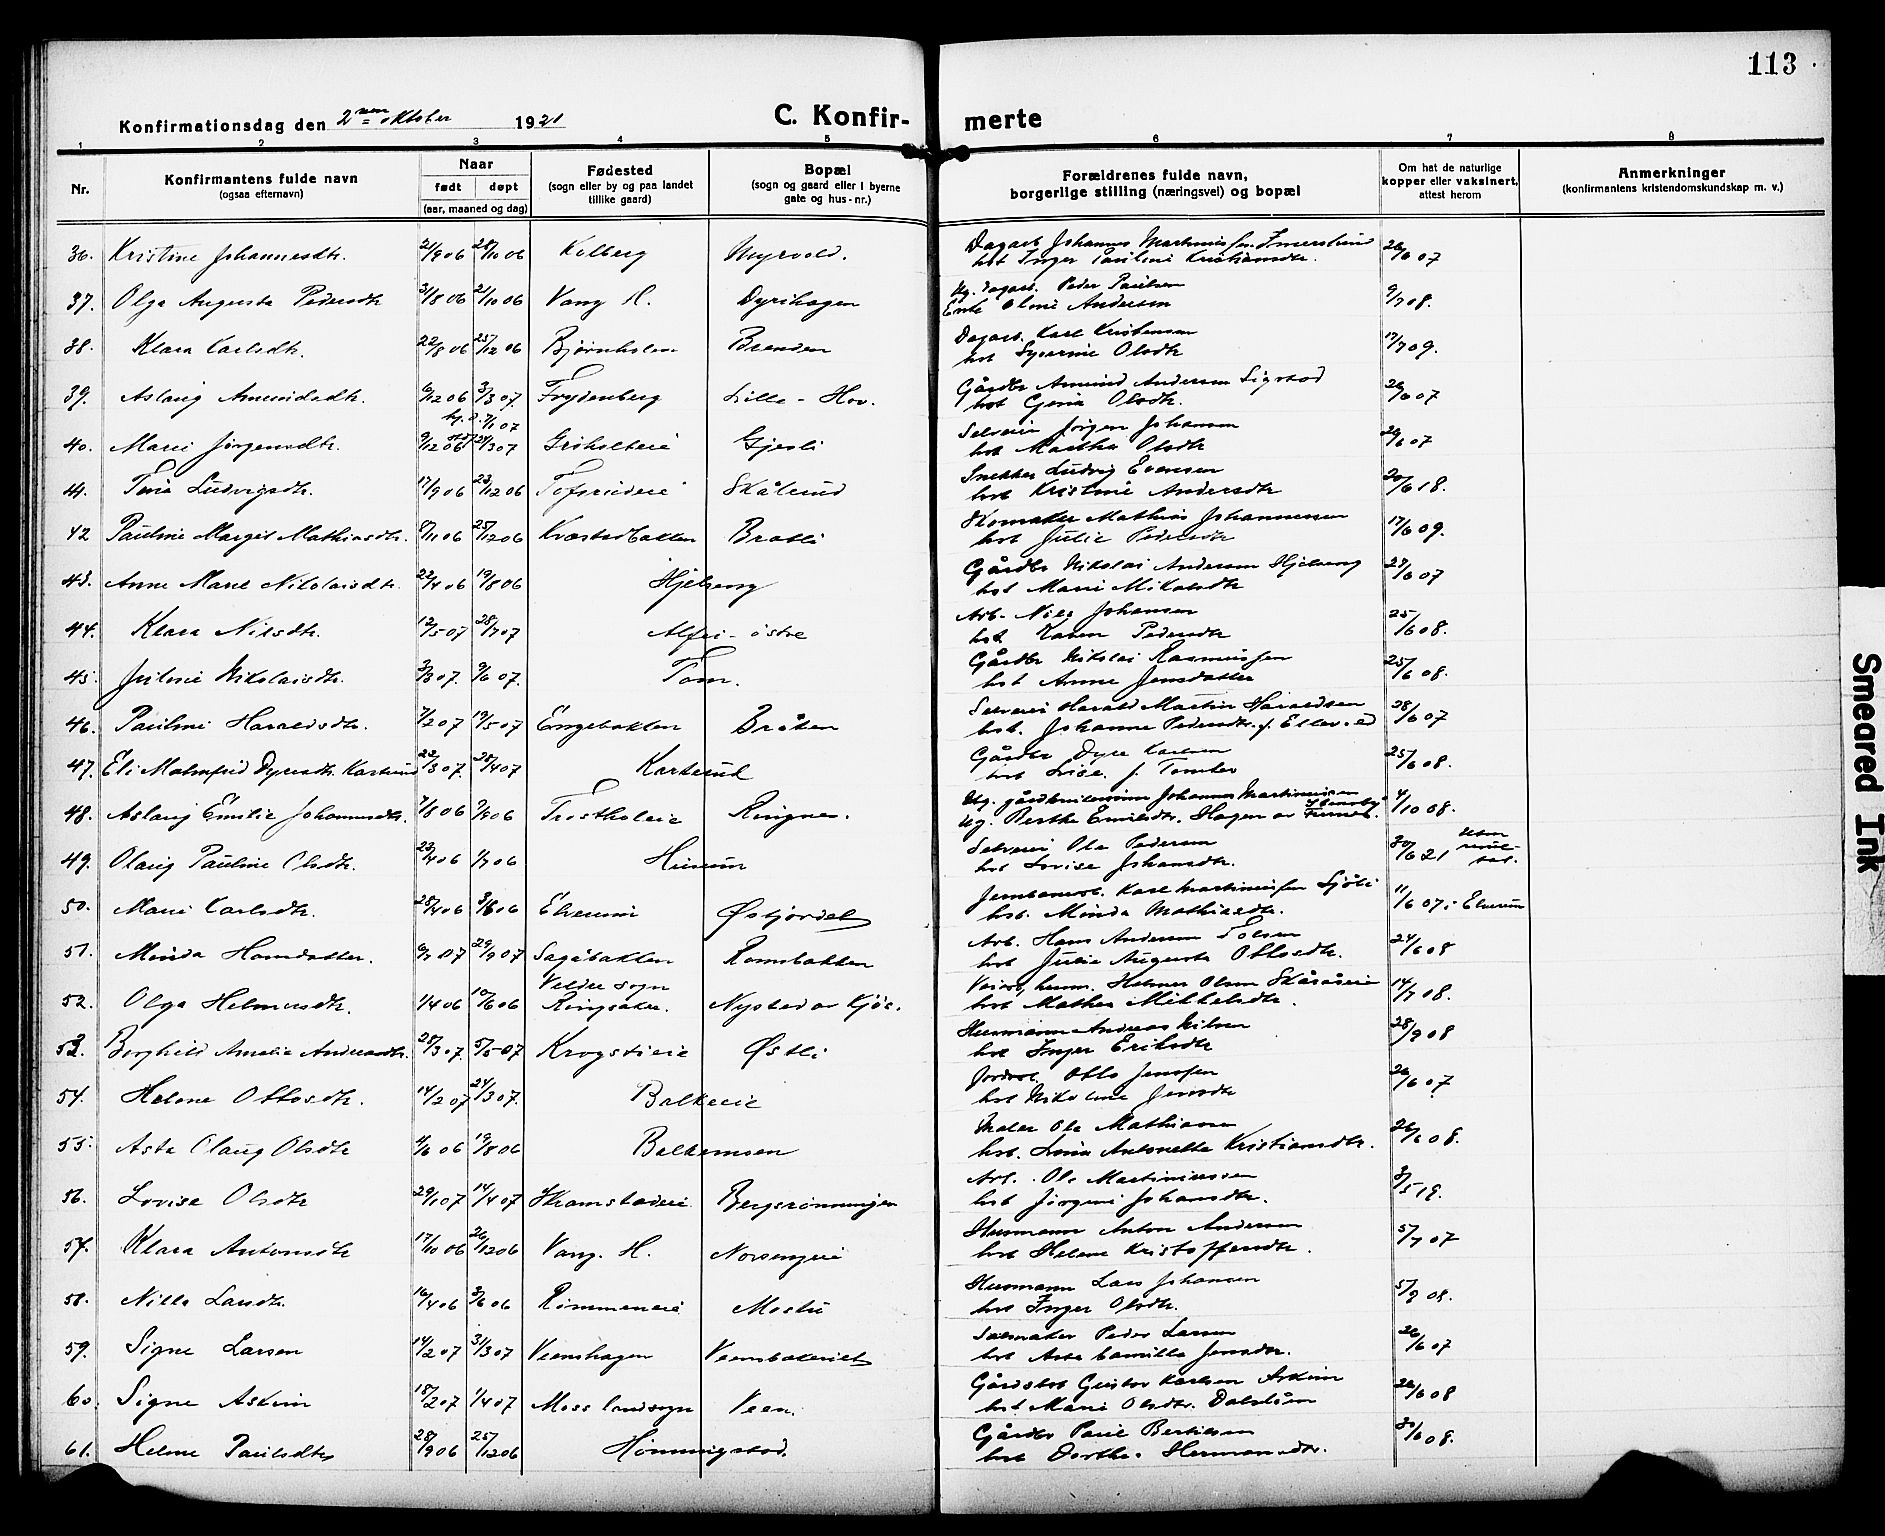 113
Konfirmationsdag den 2nen oktober 1921
C. Konfirmerte
1 2 3 4 5 6 7 8
Nr. Konfirmantens fulde navn (ogsaa efternavn) Naar født døpt (aar, maaned og dag) Fødested (sogn eller by og paa landet tillike gaard) Bopæl (sogn og gaard eller i byerne gate og hus-nr.) Forældrenes fulde navn, borgerlige stilling (næringsvei) og bopæl Om hat de naturlige kopper eller vaksinert, attest herom Anmerkninger (konfirmantens kristendomskundskap m. v.)
36. Kristine Johannesdtr. 2/9 06 28/10 06 Kolberg Myrvold. Dagarb. Johannes Martinius hst Inger Pauline Kristiansdtr. 26/6 07
37. Olga Augusta Pedersdtr 31/8 06 21/10 06 Vang H. Dyrihagen Ug. dagarb. Peder Paulsen Enke Oline Andersen 9/7 08.
38. Klara Karlsdtr. 22/8 06 25/12 06 Bjørnholen Brenden Dagarb. Karl Kristensen hst Syverine Olsdtr 17/7 09.
39. Aslaug Amundsdtr. 6/12 06 3/3 07. Frydenberg Lille-Hov. Gårdbr Amund Andersen Sigstad hst Gjenia Olsdtr. 26/6 07
40. Marie Jørgensdtr. 9/12 06 hj. d. 7/1 07 24/3 07 Griholteie Gjesli Selveier Jørgen Johansen hst Martha Olsdtr 26/6 07
41. Tina Ludvigsdtr. 17/9 06 23/12 06 Tofsrudeie Skålerud Snekker Ludvig Evensen hst Kristine Andersdtr 20/6 18.
42 Pauline Margit Mathiasdtr. 8/11 06 25/12 06 Kvæstadbakken Bratli Skomaker Mathias Johannessen hst Julie Pedersdtr 17/6 09.
43. Anne Marie Nikolaisdtr. 22/4 06 19/8 06 Hjelseng Gårdbr Nikolai Andersen Hjelseng hst Marie Mikalsdtr 27/6 07
44. Klara Nilsdtr. 12/5 07 28/7 07 Alfei-østre Arb. Nils Johansen hst Karen Pedersdtr 25/6 08.
45. Juline Nikolaisdtr. 3/3 07. 9/6 07. Tom. Gårdbr Nikolai Rasmussen hst Anne Jensdatter 25/6 08.
46. Pauline Haraldsdtr. 7/2 07 19/5 07 Engebakken Bråten Selveier Harald Martin Haraldsen hst. Johanne Pedersdtr. 28/6 07
47. Eli Malmfrid Dyresdtr. Karterud 22/3 07. 28/4 07 Karterud Gårdbr Dyre Karlsen hst Lise f. Tomter 25/6 08.
48. Aslaug Emilie Johannesdtr. 7/8 06 9/9 06 Trostholeie Ringnes. Ug. gårdbrukersønn Johannes Martinussen Ug. Berthe Emilsdtr. Hagen av Furnes. 4/10 08.
49. Olaug Pauline Olsdtr. 23/4 06 1/7 06 Husum Selveier Ole Pedersen hst Lovise Johansdtr. 30/6 21 uten resultat.
50. Marie Karlsdtr. 28/4 06 3/6 06 Elverum Østjordet Jernbanearb. Karl Martiniussen Sjøli hst. Minda Mathiasdtr. 11/6 07 i Elverum
51. Minda Hansdatter. 6/7 07 29/9 07 Sagåbakken Romsbakken Arb. Hans Andersen Tolsen hst Julie Augusta Ottosdtr. 24/6 08
52. Olga Helmersdtr. 1/4 06 10/6 06 Veldre sogn Ringsaker. Nystad av Kjos. Helmer Olsen Skåråseie hst Mathea Mikkelsdtr. 14/7 08.
53. Borghild Amalie Andreasdtr. 28/3 07. 5/5 07 Krogstieie Østli Husmann Andreas Nilsen hst Inger Eriksdtr 28/9 08
54. Helene Ottosdtr. 14/2 07 24/3 07. Balkeeie Jordarb. Otto Jensen hst Nikoline Jensdtr 26/6 07
55. Asta Olaug Olsdtr 4/6 06 19/8 06 Balkemoen Maler Ole Mathiasen hst. Lina Antonette Kristiansdtr. 26/6 08.
56. Lovise Olsdtr 29/1 07 14/4 07 Skramstadeie Bergsrønningen Arb. Ole Martiniussen hst Jørgine Johansdtr. 3/5 19.
57. Klara Antonsdtr 17/10 06 26/12 06 Vang. H. Norsengeie Husmann Anton Andersen hst Helene Kristoffersdtr. 5/7 07
58. Nilla Larsdtr. 16/4 06 3/6 06 Rommeneie Mostu Husmann Lars Johansen hst Inger Olsdtr. 5/9 08.
59. Signe Larsen 14/2 07 31/3 07 Veenshagen Veensbakeriet Salmaker Peder Larsen hst Asta Camilla Jensdtr. 26/6 07
60. Signe Askim 18/2 07 1/4 07 Moss landsogn Veen. Gårdsbst Gustav Karlsen Askim hst Marie Olsdtr. Dalstrøm 26/6 08
61. Helene Paulsdtr 28/9 06 25/12 06 Hommerstad. Gårdbr Paul Bertilsen hst Dorthe Hermansdtr. 30/6 08.
Smeared Ink